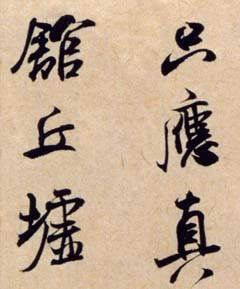 只應真
館丘墟